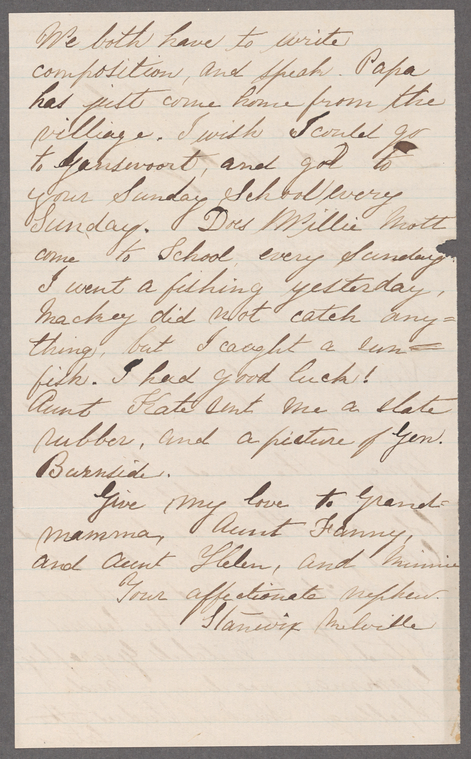 We both have to write
composition, and speak. Papa
has just come home from the
villiage. I wish I could go
to Gansevoort, and go to
your Sunday School every
Sunday. Does Willie Mott
come to School every Sunday.
I went a fishing yesterday,
Mackey did not catch any=
thing, but I caught a sun=
fish. I had good luck!
Aunt Kate sent me a slate
rubber, and a picture of Gen.
Burnside.
Give my love to Grand=
mamma, Aunt Fanny,
and Aunt Helen, and Minnie
Your affectionate nephew.
Stanwix Melville